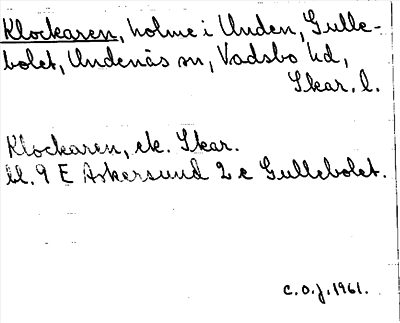 Klockaren, holme i Unden, Gulle-
bolet, Undenäs sn, Vadsbo hd,
Skar. l.
Klockaren, ek. Skar.
bl. 9 E Askersund 2 e Gullebolet.
C.O.J. 1961.